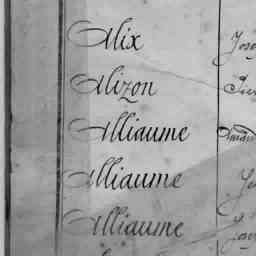 Alix
Alizon
Alliaume
Alliaume
Alliaume